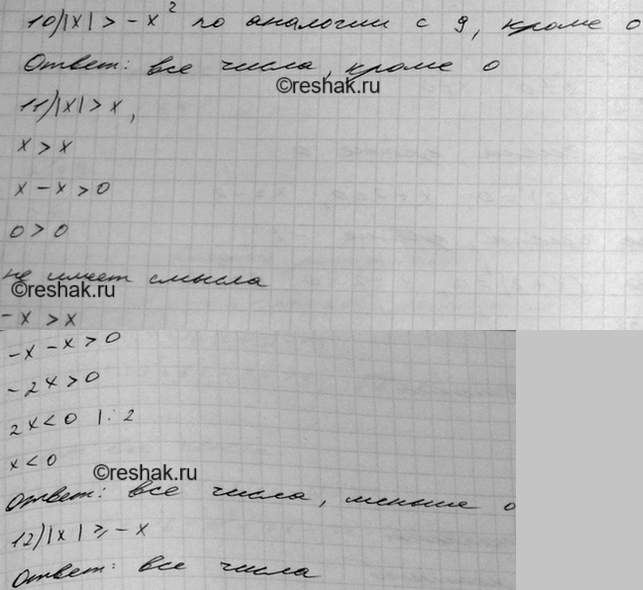 10) |x| > -x² по аналогии с 9, кроме 0
Ответ: все числа, кроме 0
©reshak.ru
11) |x| > x,
x > x
x - x > 0
0 > 0
не имеет смысла
©reshak.ru
-x > x
-x - x > 0
-2x > 0
2x < 0 |: 2
x < 0
©reshak.ru
Ответ: все числа, меньше 0
12) |x| ≥ -x
Ответ: все числа